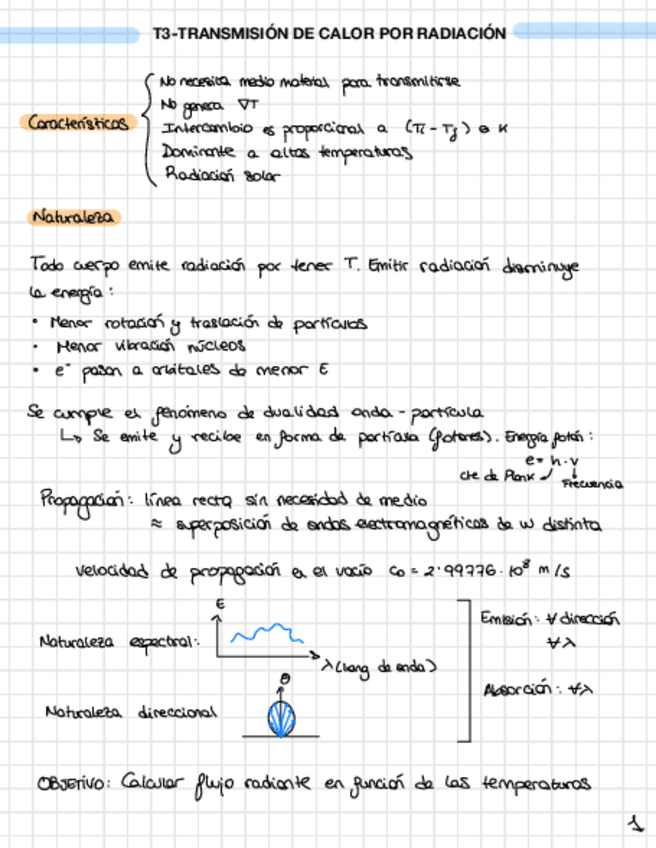 T3-TRANSMISIÓN DE CALOR POR RADIACIÓN
Características
No necesita medio material para transmitirse
No genera ∇T
Intercambio es proporcional a (Ti - Tj) en K
Dominante a altas temperaturas
Radiación solar
Naturaleza
Todo cuerpo emite radiación por tener T. Emitir radiación disminuye
la energía:
• Menor rotación y traslación de partículas
• Menor vibración núcleos
• e⁻ pasan a orbitales de menor E
Se cumple el fenómeno de dualidad onda - partícula
↳ Se emite y recibe en forma de partícula (fotones). Energía fotón:
e = h·ν
cte de Plank
Frecuencia
Propagación: línea recta sin necesidad de medio
≈ superposición de ondas electromagnéticas de w distinta
velocidad de propagación en el vacío c₀ = 2'99776·10⁸ m/s
E
Naturaleza espectral:
λ (long de onda)
Θ
Naturaleza direccional
Emisión: ∀ dirección
∀λ
Absorción: ∀λ
OBJETIVO: Calcular flujo radiante en función de las temperaturas
1